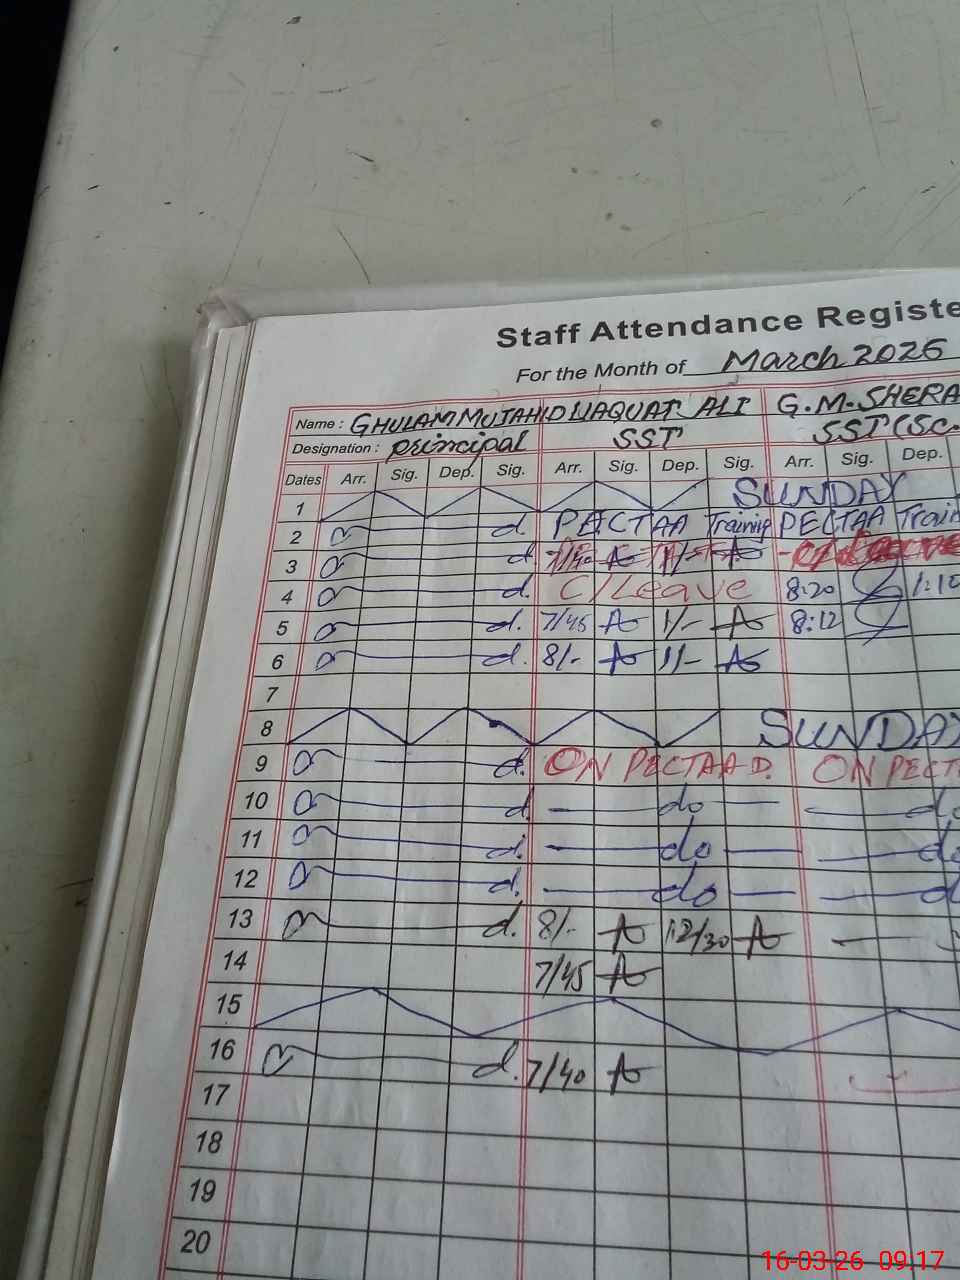 Staff Attendance Registe
For the Month of March 2026
Name : GHULAM MUJAHID LIAQUAT ALI G.M.SHERA
Designation : principal SST SST (Sc.
Dates Arr. Sig. Dep. Sig. Arr. Sig. Dep. Sig. Arr. Sig. Dep.
1 SUNDAY
2 d. PECTAA Training PECTAA Train
3 d.
4 d. C/Leave 8:20 1:10
5 d. 7/45 1/- 8:12
6 d. 8/- 1/-
7
8 SUNDAY
9 d. ON PECTAA D. ON PECT
10 d. — do — — do
11 d. — do — — do
12 d. — do — — d
13 d. 8/- 12/30
14 7/45
15
16 d. 7/40
17
18
19
20
16-03-26 09:17